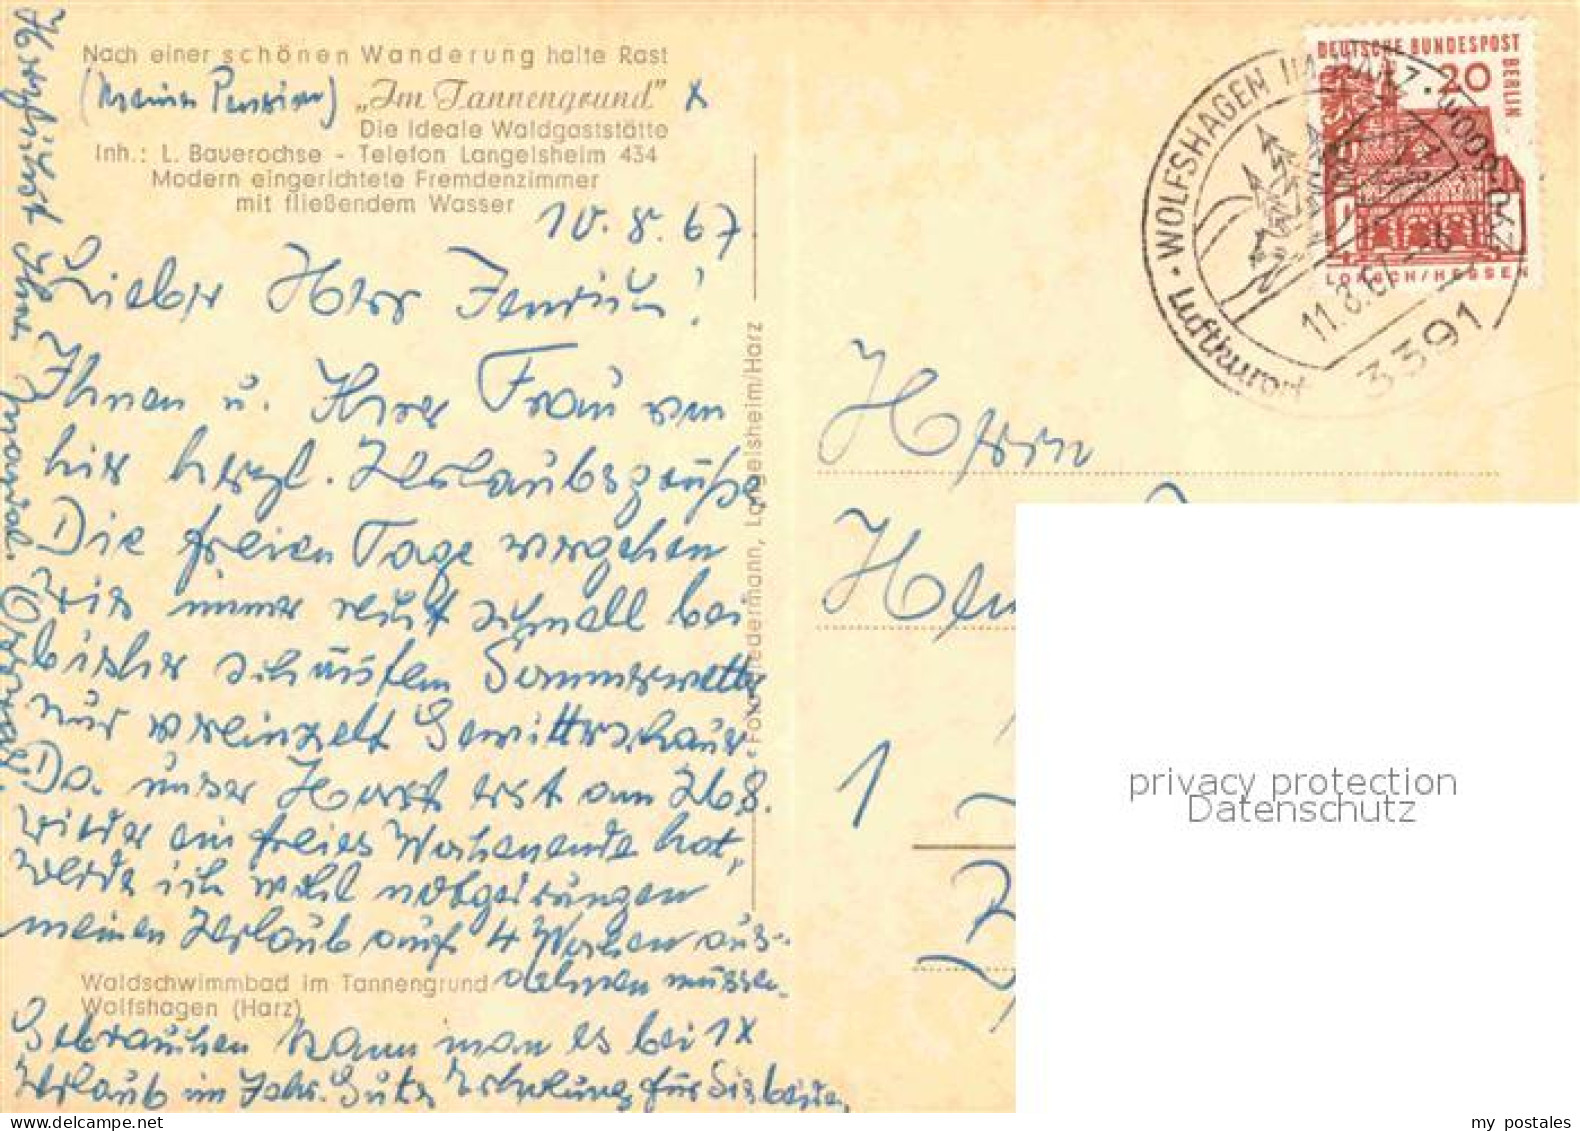 Nach einer schönen Wanderung halte Rast
(Meine Pension) „Im Tannengrund" x
Die ideale Waldgaststätte
Inh.: L. Bauerochse - Telefon Langelsheim 434
Modern eingerichtete Fremdenzimmer
mit fließendem Wasser
10.8.67
Lieber Herr
Ihnen u. Ihrer Frau von
hier herzl. Urlaubsgrüße
Die freien Tage vergehen
wie immer recht schnell bei
bisher schönstem Sommerwetter
nur vereinzelt Gewitterschauer
Da unser Horst erst am 26.8.
wieder ein freies Wochenende hat,
werde ich wohl notgedrungen
meinen Urlaub auf 4 Wochen aus-
dehnen müssen.
Waldschwimmbad im Tannengrund
Wolfshagen (Harz)
Gebrauchen kann man es bei 1x
Urlaub im Jahr. Gute Erholung für Sie beide,
Herzlichst Ihr
Foto Niedermann, Langelsheim/Harz
DEUTSCHE BUNDESPOST
BERLIN
20
LORSCH/HESSEN
WOLFSHAGEN IM HARZ
Luftkurort
11.8.67
3391
Herrn
1
privacy protection
Datenschutz
my postales